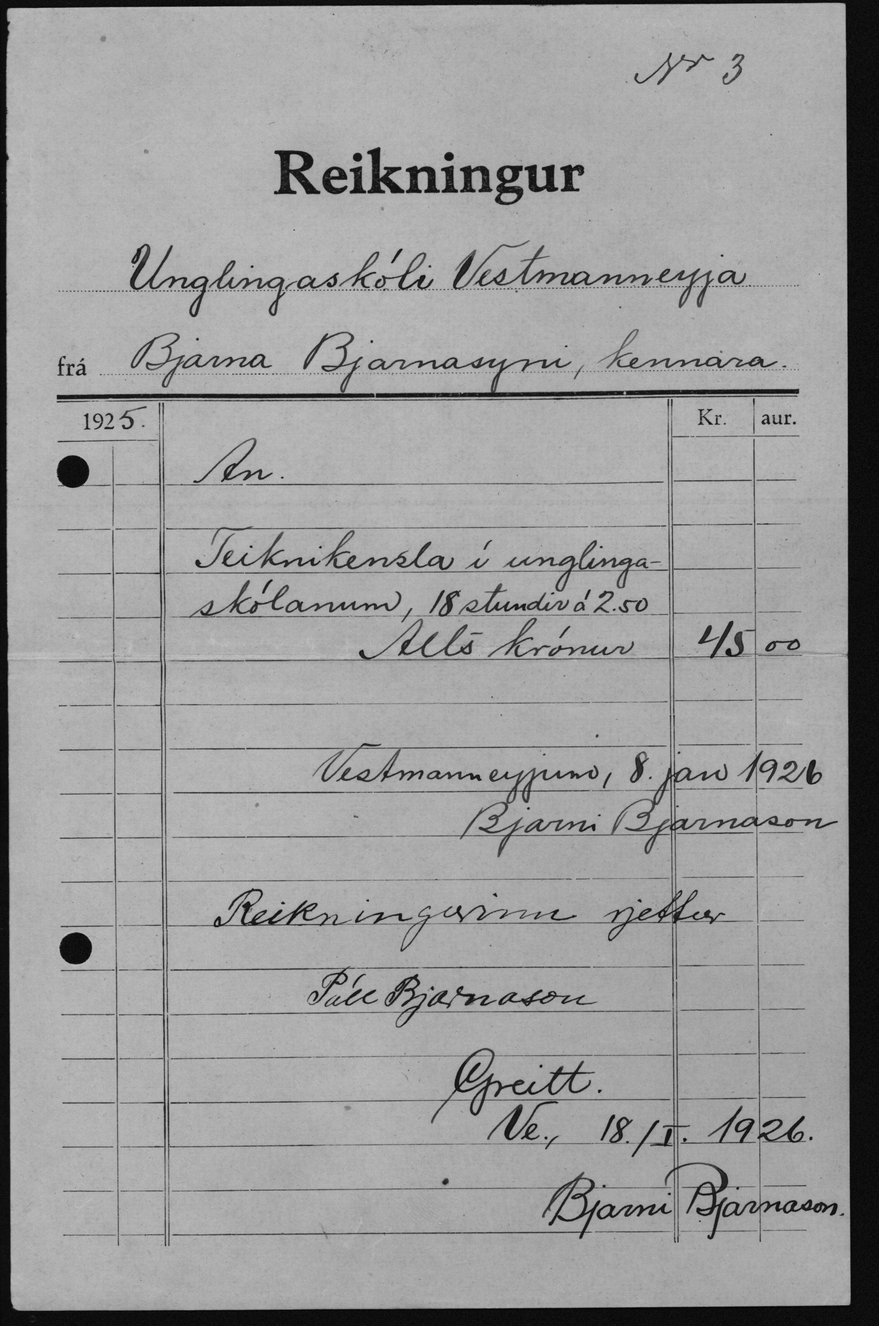 Nr 3
Reikningur
Unglingaskóli Vestmanneyja
frá Bjarna Bjarnasyni, kennara.
1925. Kr. aur.
An.
Teiknikensla í unglinga-
skólanum, 18 stundir á 2.50
Alls krónur 45 00
Vestmanneyjum, 8. jan 1926
Bjarni Bjarnason
Reikningurinn rjettur
Páll Bjarnason
Greitt.
Ve., 18./I. 1926.
Bjarni Bjarnason.